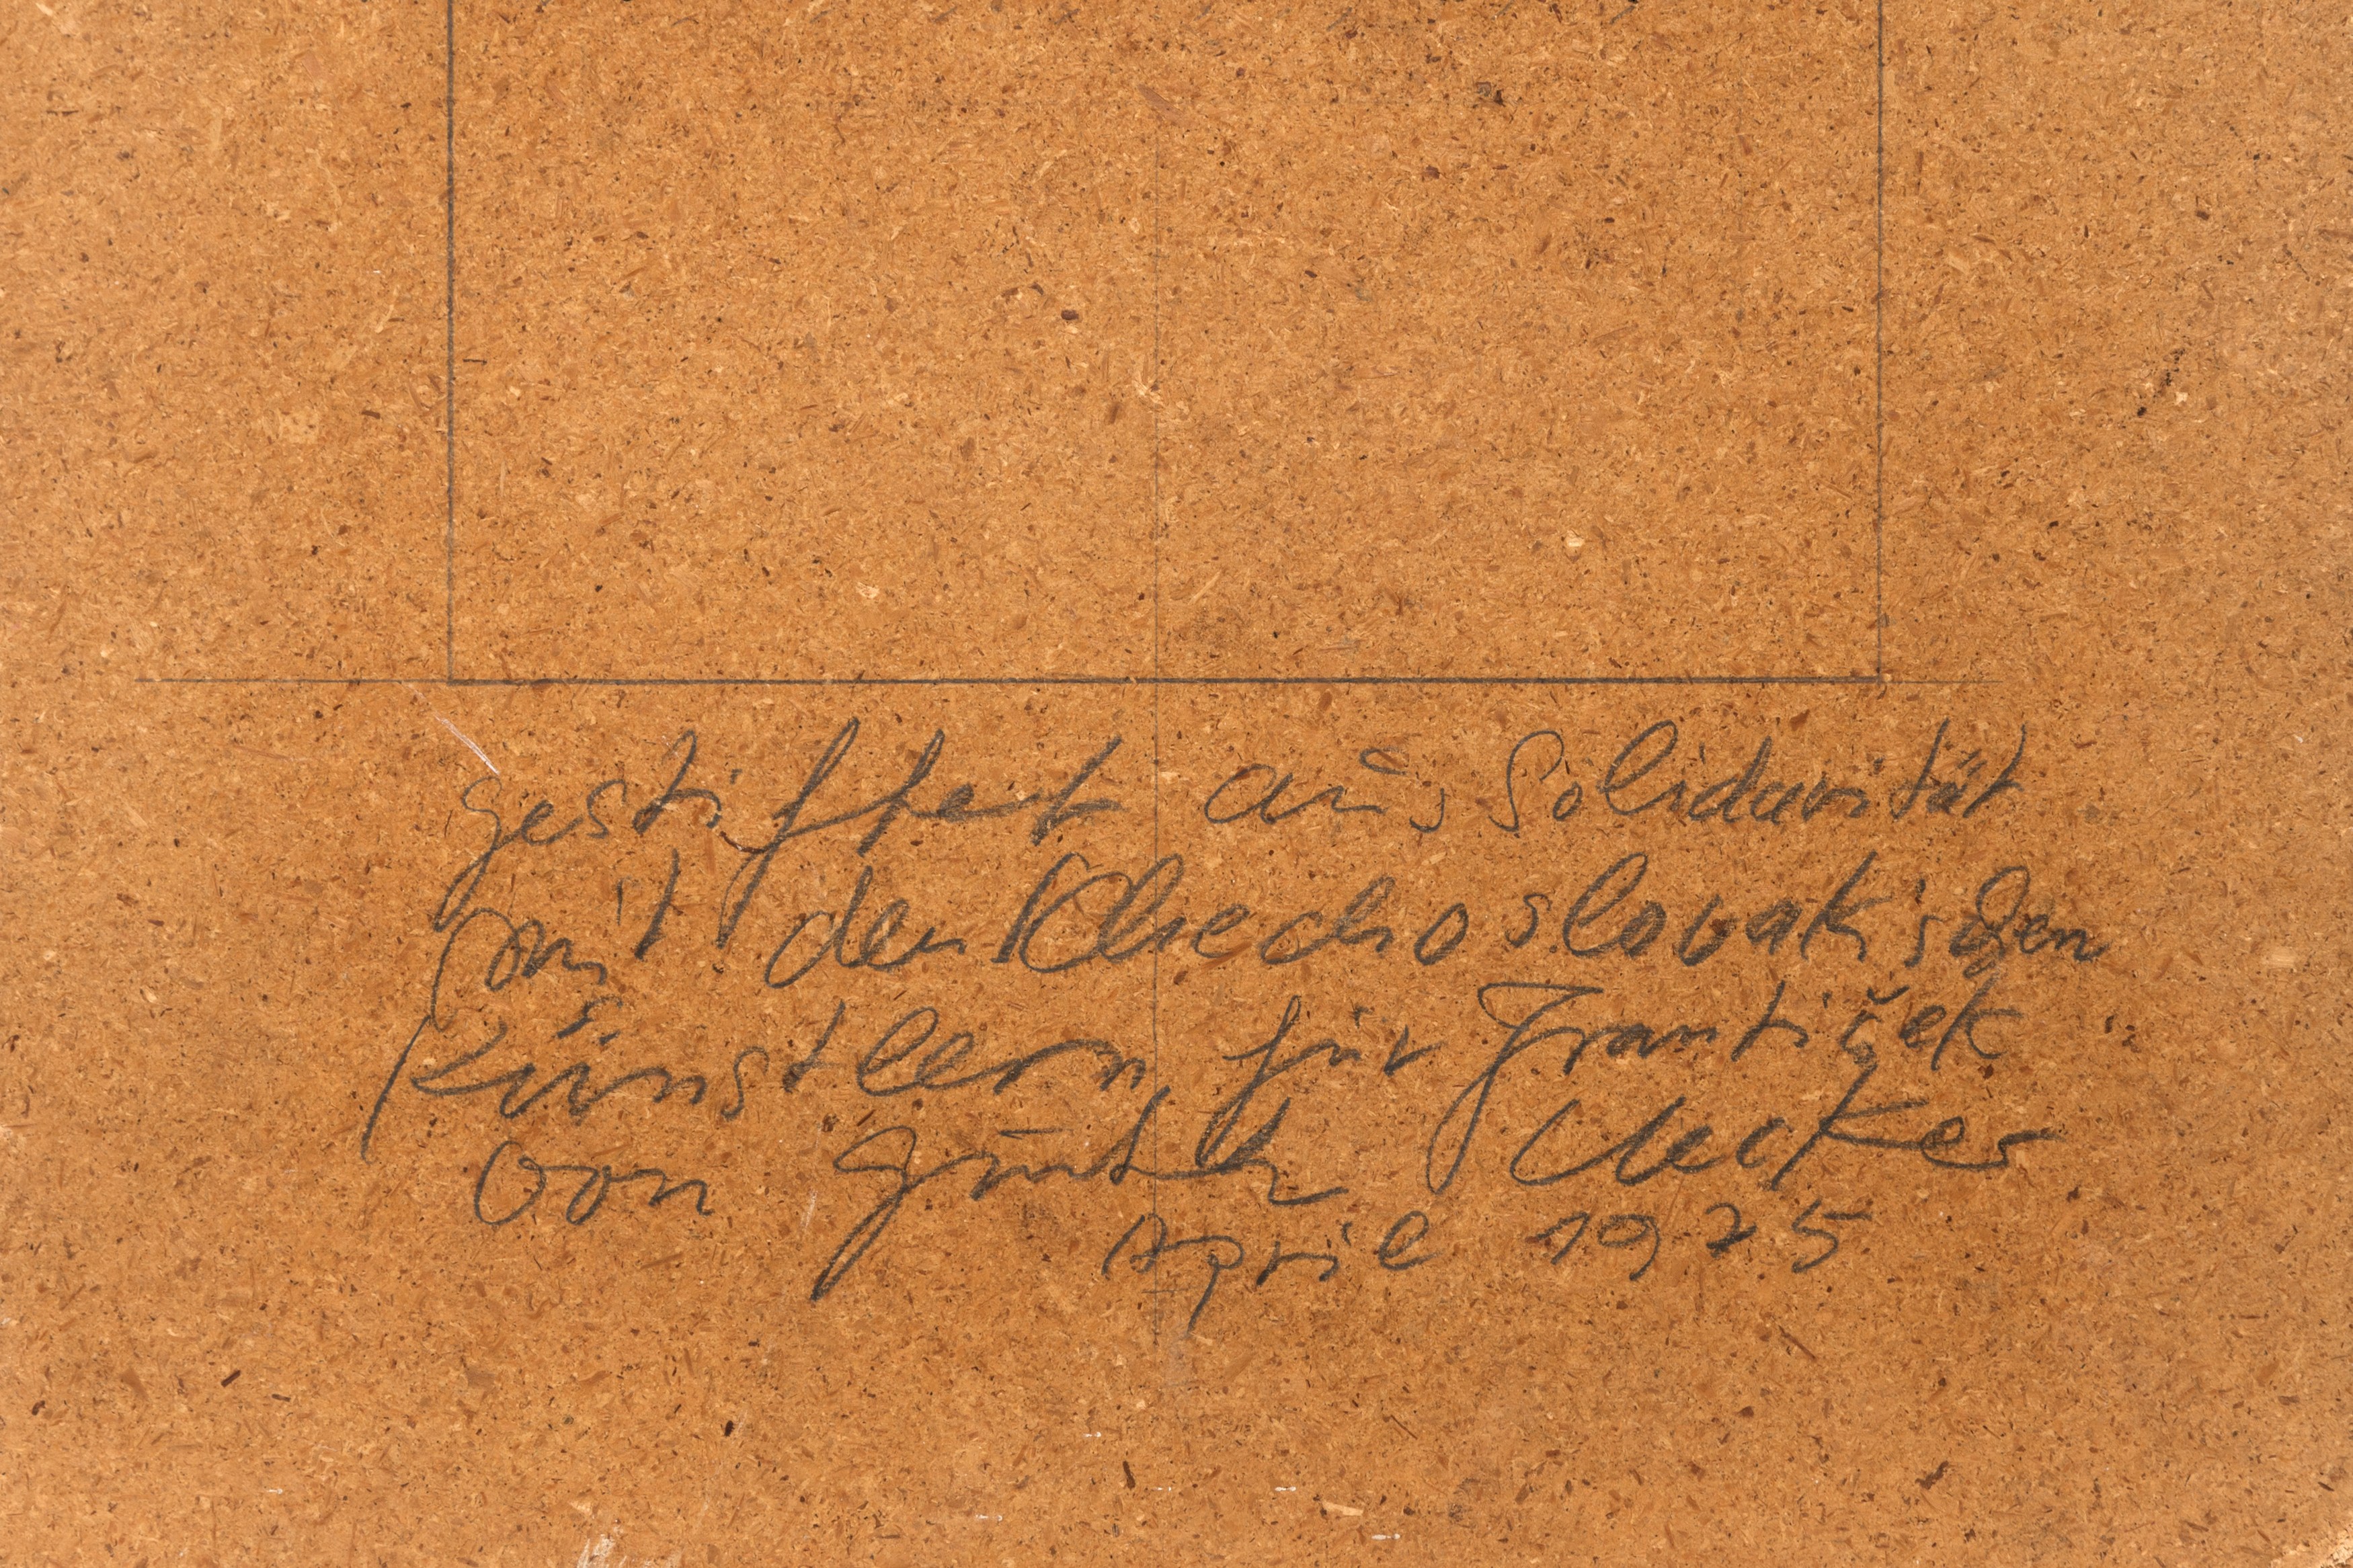 gestiftet aus Solidarität
mit den Chechoslovakischen
Künstlern, für František
von Günther Uecker
April 1975